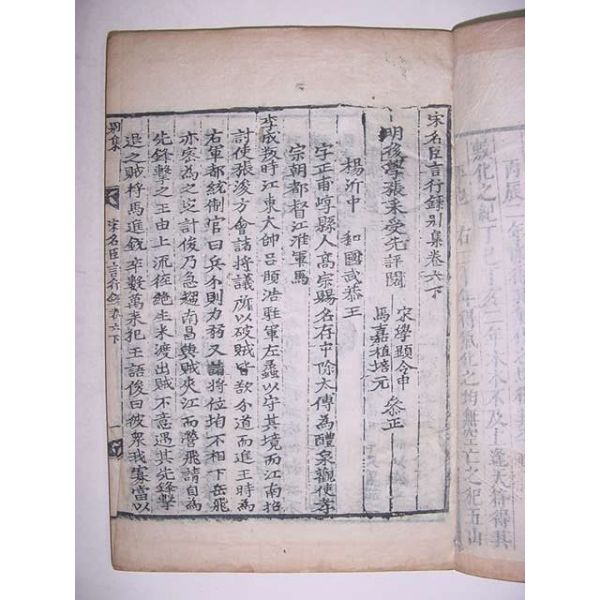 宋名臣言行錄别集卷六下
明後學張采受先評閱
宋學顯令申
馬嘉植培元 叅正
楊沂中 和國武恭王
字正甫崞縣人高宗賜名存中除太傅為醴泉觀使孝
宗朝都督江淮軍馬
李成叛時江東大帥吕頤浩駐軍左蠡以守其境而江南招
討使張浚方會諸將議所以破賊皆欲分道而進王時為
右軍都統制官曰兵分則力弱又諸將位均不相下岳飛
亦密為之定計俊乃急趨南昌與賊夾江而營飛請自為
先鋒擊之王由上流徑絶生米渡出賊不意遇其先鋒擊
退之賊將馬進銳卒數萬來犯王語俊曰彼衆我寡當以
别集
宋名臣言行錄卷六下
一